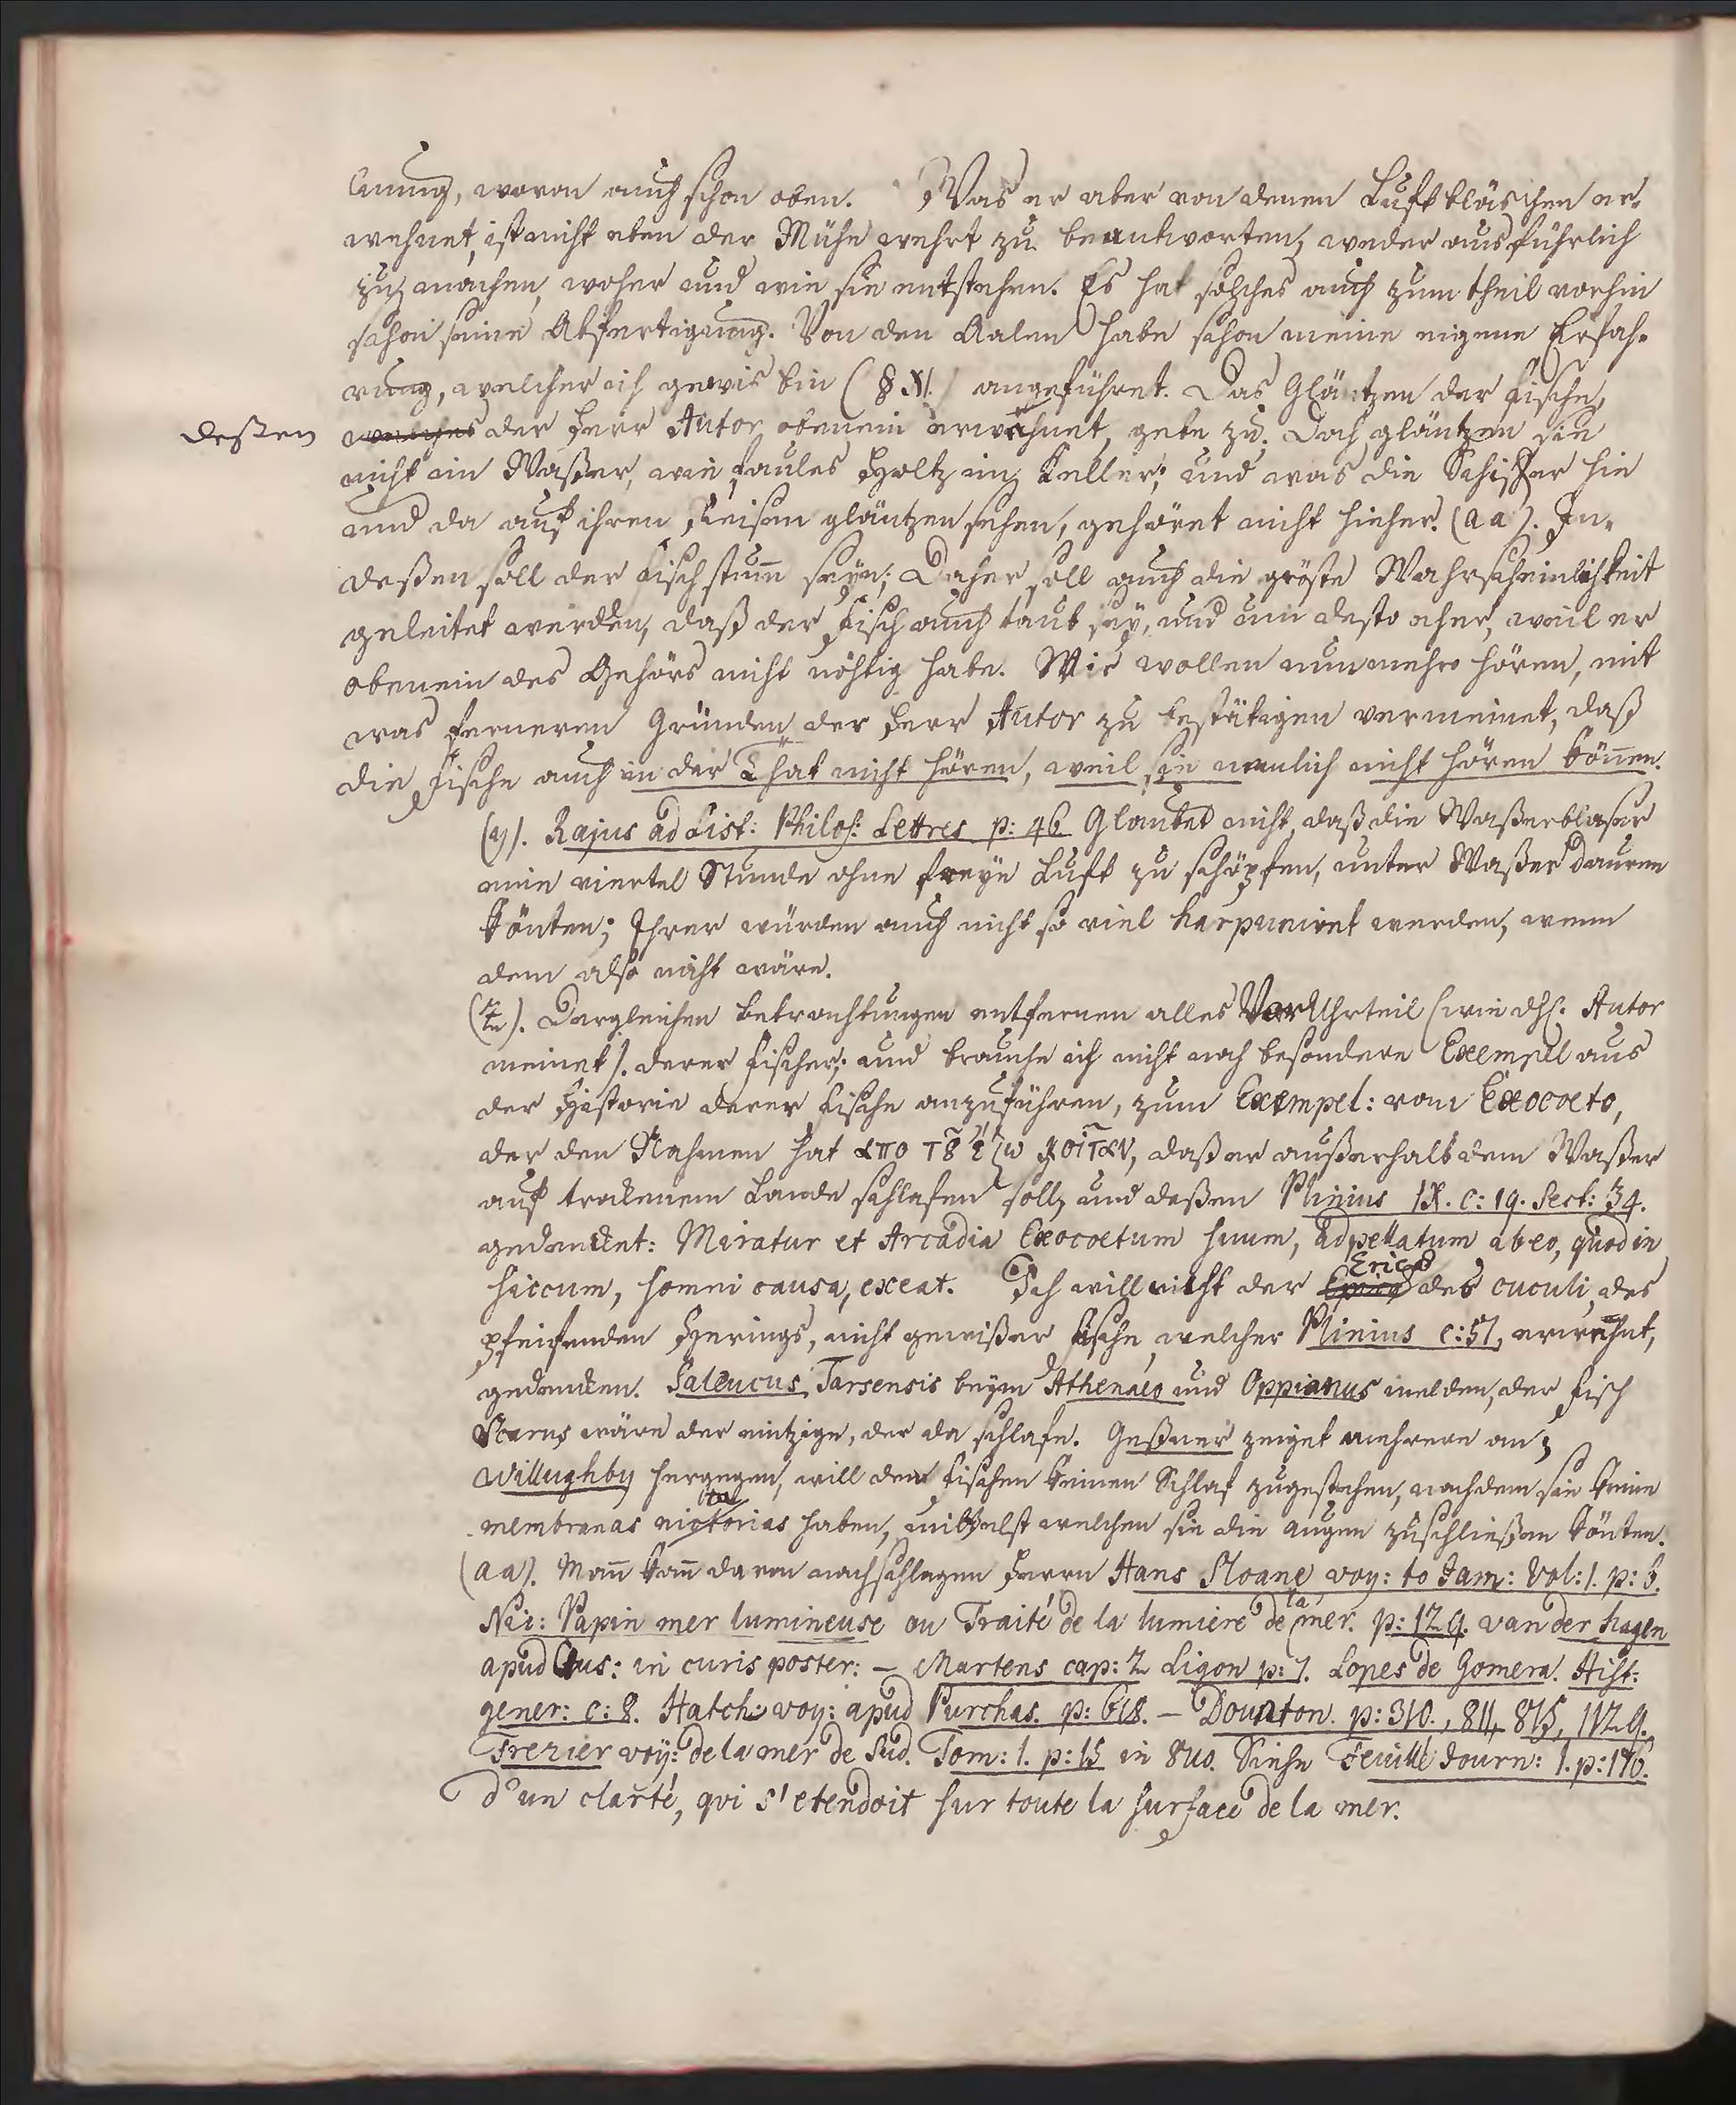 nung, wovon auch schon oben. Was er aber von denen Luftbläschen er-
wehnet, ist nicht eben der Mühe wehrt zu beantworten, weder ausführlich
zu machen, woher und wie sie entstehen. Es hat solches auch zum theil vorhin
schon seine Abfertigung. Von den Aalen habe schon meine eigene Erfah-
rung, welcher ich gewis bin (§ XI.) angeführet. Das Gläntzen der Fische,
deßen welches der Herr Autor obenein erwehnet, gebe zu. Doch gläntzen sie
nicht im Waßer, wie faules Holtz im Keller; und was die Schiffer hie
und da auf ihren Reisen gläntzen sehen, gehöret nicht hieher. (aa). In-
deßen soll der Fisch stum̅ seyn; Daher soll auch die gröste Wahrscheinlichkeit
geleitet werden, daß der Fisch auch taub sey, und um desto eher, weil er
obenein des Gehörs nicht nöhtig habe. Wir wollen nunmehro hören, mit
was ferneren Gründen der Herr Autor zu bestätigen vermeinet, daß
die Fische auch in der That nicht hören, weil sie nemlich nicht hören kön̅en.
(y). Rajus ad List: Philos: Lettres p: 46 Glaubet nicht, daß die Waßerblaser
eine viertel Stunde ohne freye Luft zu schöpfen, unter Waßer dauren
könten; Ihrer würden auch nicht so viel harpuniret werden, wenn
dem also nicht wäre.
(z). Dergleichen Betrachtungen entfernen alles VorUhrteil (wie dH. Autor
meinet). derer Fischer; und brauche ich nicht noch besondere Exempel aus
der Historie derer Fische anzuführen, zum Exempel: vom Exocoeto,
der den Nahmen hat απο τȣ ἔξω κοιταν, daß er außerhalb dem Waßer
auf trockenem Lande schlafen soll, und deßen Plinius IX. c: 19. Sect: 34.
gedencket: Miratur et Arcadia Exocoetum suum, adpellatum ab eo, quod in
siccum, somni causa, exeat. Ich will nicht der Erica des cuculi, des
pfeifenden Herings, nicht gewißer Fische, welcher Plinius c: 51, erwehnt,
gedencken. Saleucus Tarsensis beym Athenaeo und Oppianus melden, der Fisch
Scarus wäre der eintzige, der da schlafe. Geßner zeiget mehrere an;
Willughby hergegen, will den Fischen keinen Schlaf zugestehen, nachdem sie keine
membranas nictorias haben, mittelst welchen sie die Augen zuschließen könten.
(aa). Man̅ kan̅ davon nachschlagen Herrn Hans Sloane voy: to Jam: Vol: 1. p: 3.
Nic: Papin mer lumineuse ou Traité de la lumiere de la mer. p: 129. van der Hagen
apud Clus: in curis poster: – Martens cap: 2 Ligon p: 7. Lopes de Gomera. Hist:
gener: c: 8. Hatch: voy: apud Purchas. p: 618. – Dounton. p: 310., 811, 875, 1129.
Frezier voy: de la mer de Sud. Tom: 1. p: 15 in 8vo. Siehe Feuillé Journ: 1. p: 176.
d'un clarté, qui s'etendoit sur toute la surface de la mer.